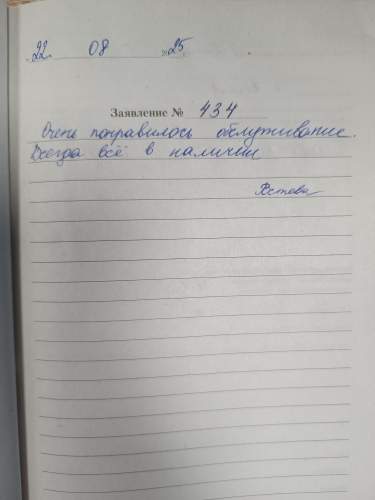 „22 08 "25
Заявление № 434
Очень понравилось обслуживание.
Всегда всё в наличии